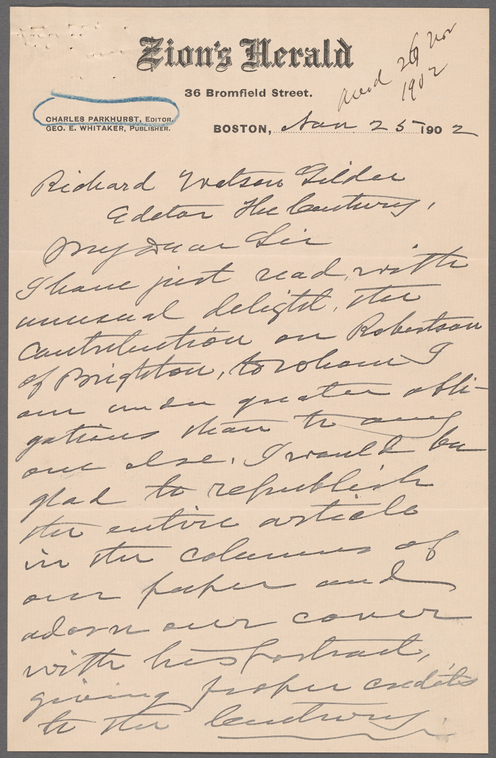 Zion's Herald
36 Bromfield Street.
CHARLES PARKHURST, Editor.
GEO. E. WHITAKER, Publisher.
26 Nov
1902
BOSTON, Nov 25 1902
Richard Watson Gilder
Editor The Century,
My Dear Sir
I have just read, with
unusual delight, the
contribution on Robertson
of Brighton, to whom I
am under greater obli-
gations than to any
one else. I would be
glad to republish
the entire article
in the columns of
our paper and
adorn our cover
with his portrait,
giving proper credits
to the Century.